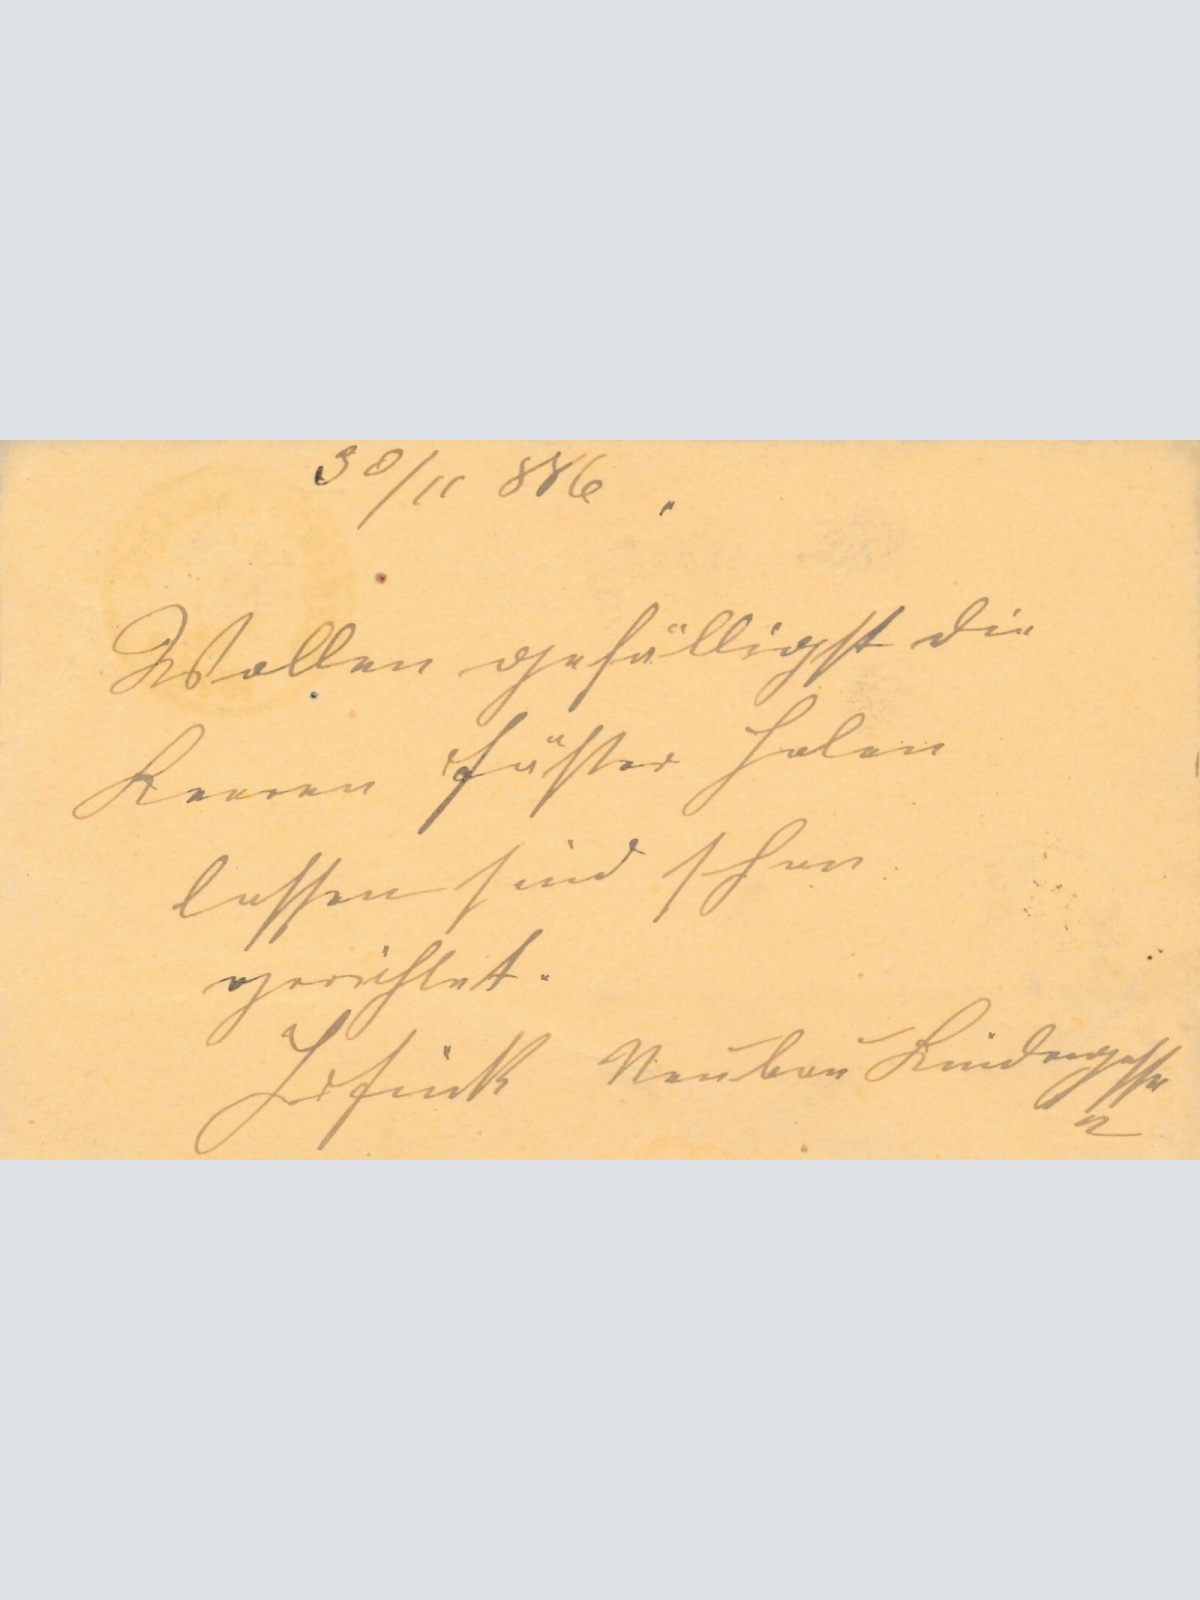 30/11 886
Wollen gefälligst die
leeren Fäßer holen
lassen sind schon
gerichtet.
Neubau Lindengasse
2